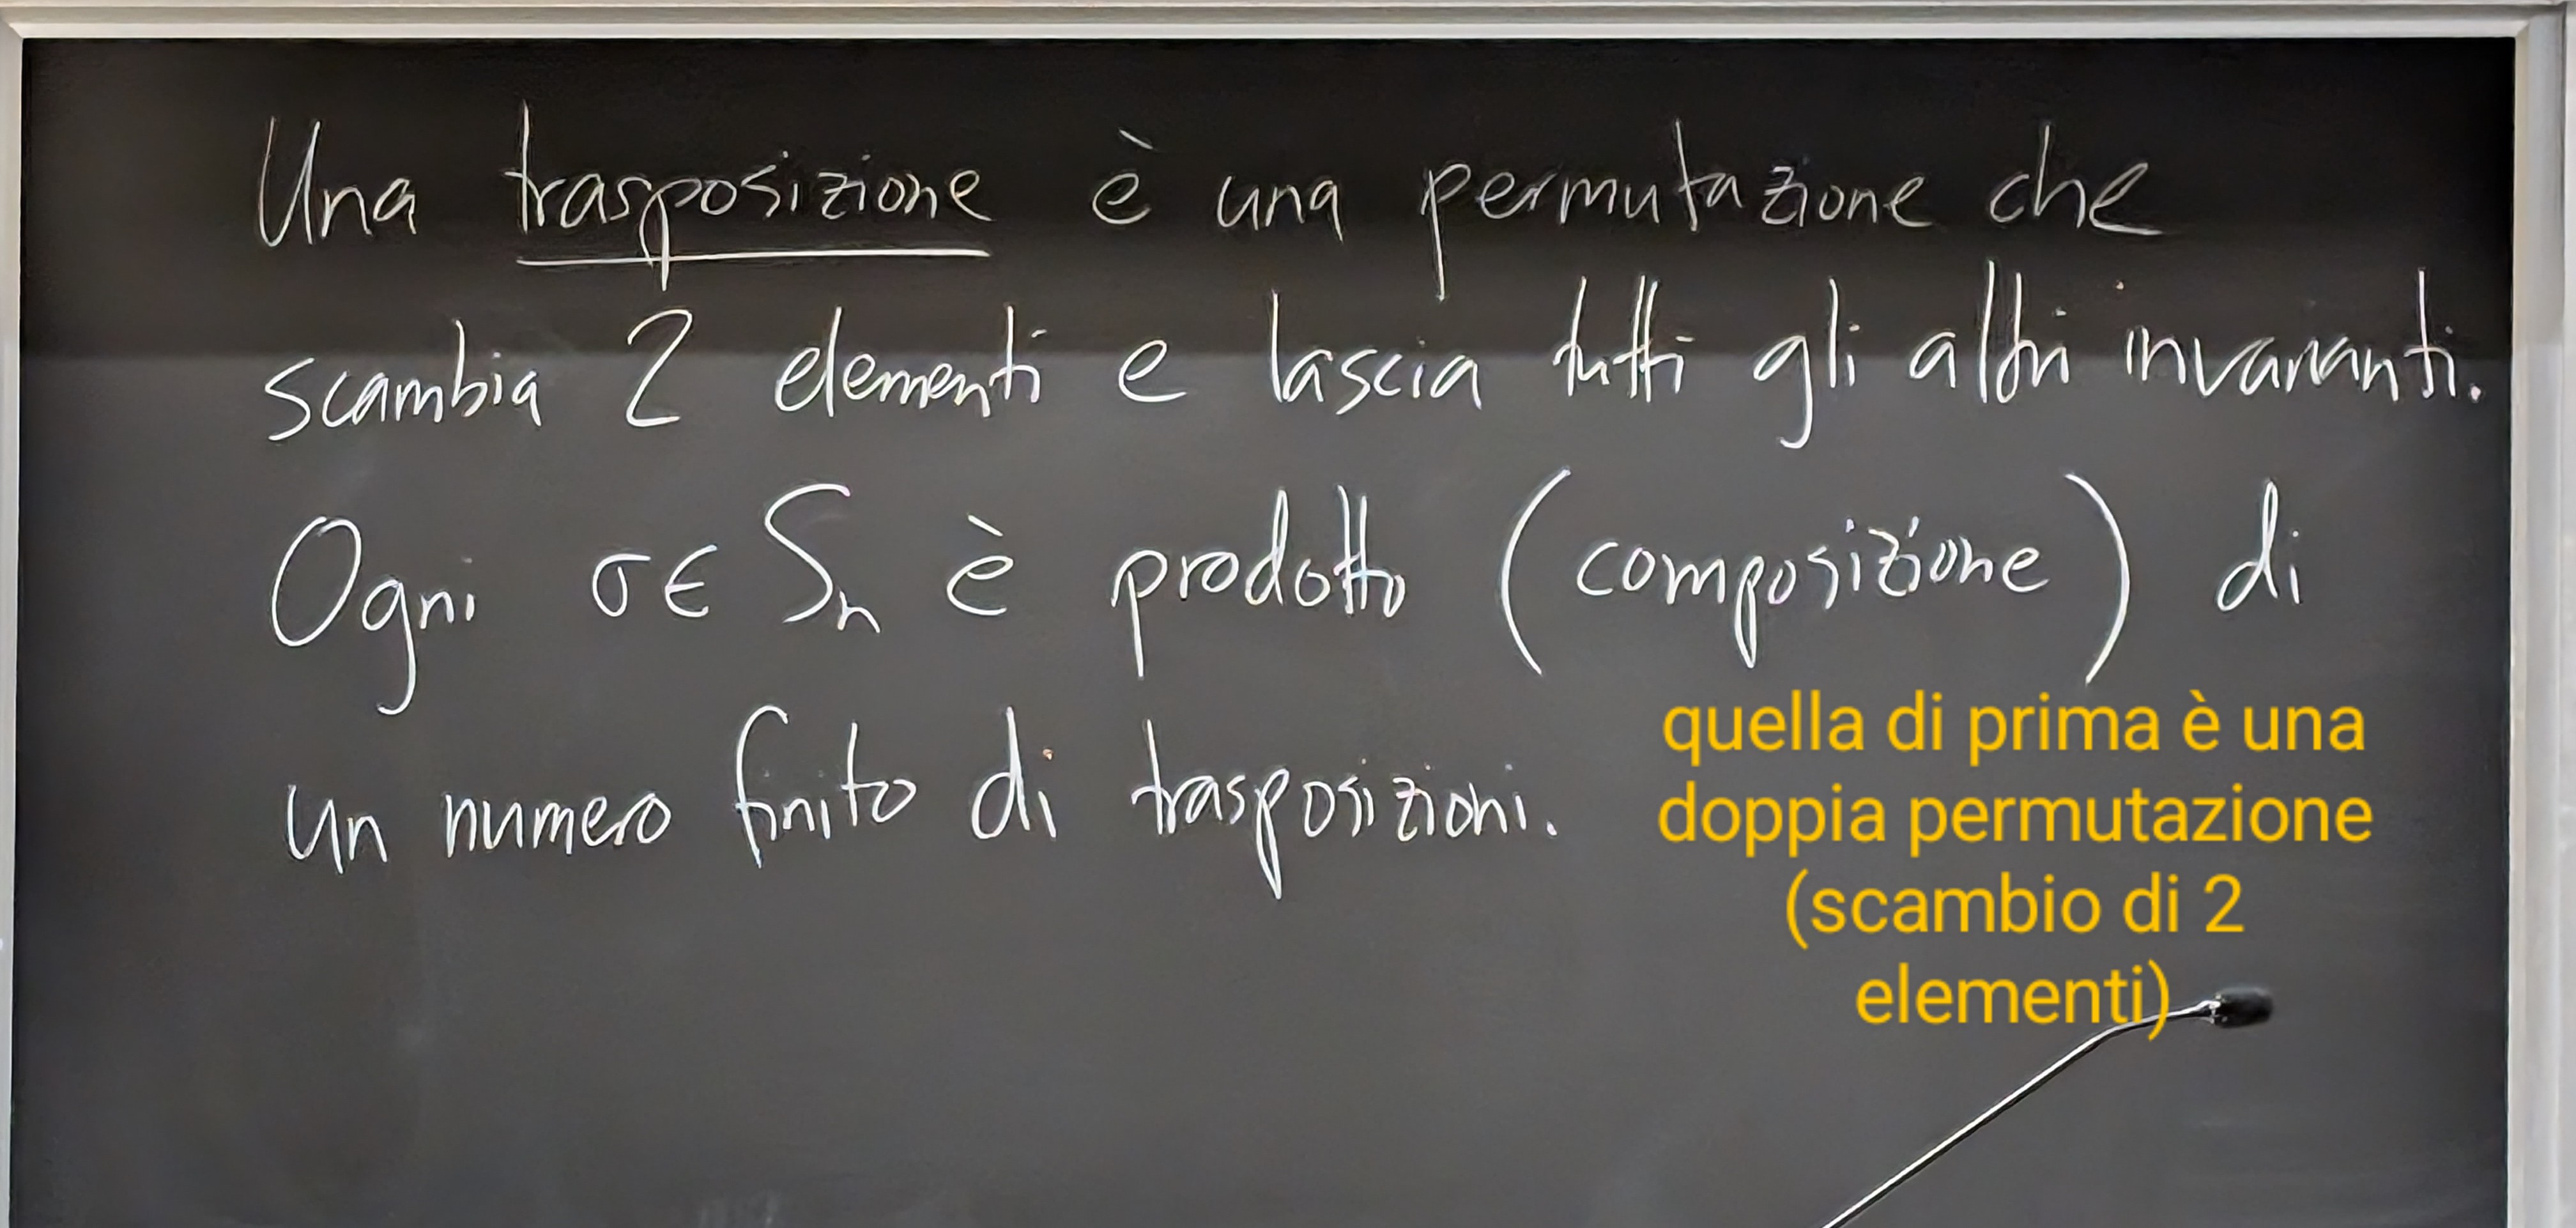 Una trasposizione è una permutazione che
scambia 2 elementi e lascia tutti gli altri invarianti.
Ogni σ ∈ Sn è prodotto (composizione) di
un numero finito di trasposizioni.
quella di prima è una
doppia permutazione
(scambio di 2
elementi)